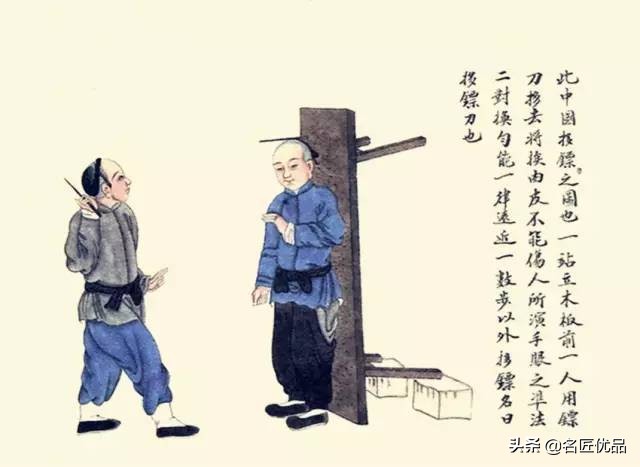 此中國扔鏢之圖也一站立木板前一人用鏢
刀扔去將挨由皮不能傷人所演手眼之準法
二對換勻能一律遠近一數步以外扔鏢名曰
扔鏢刀也
头条 @名匠优品